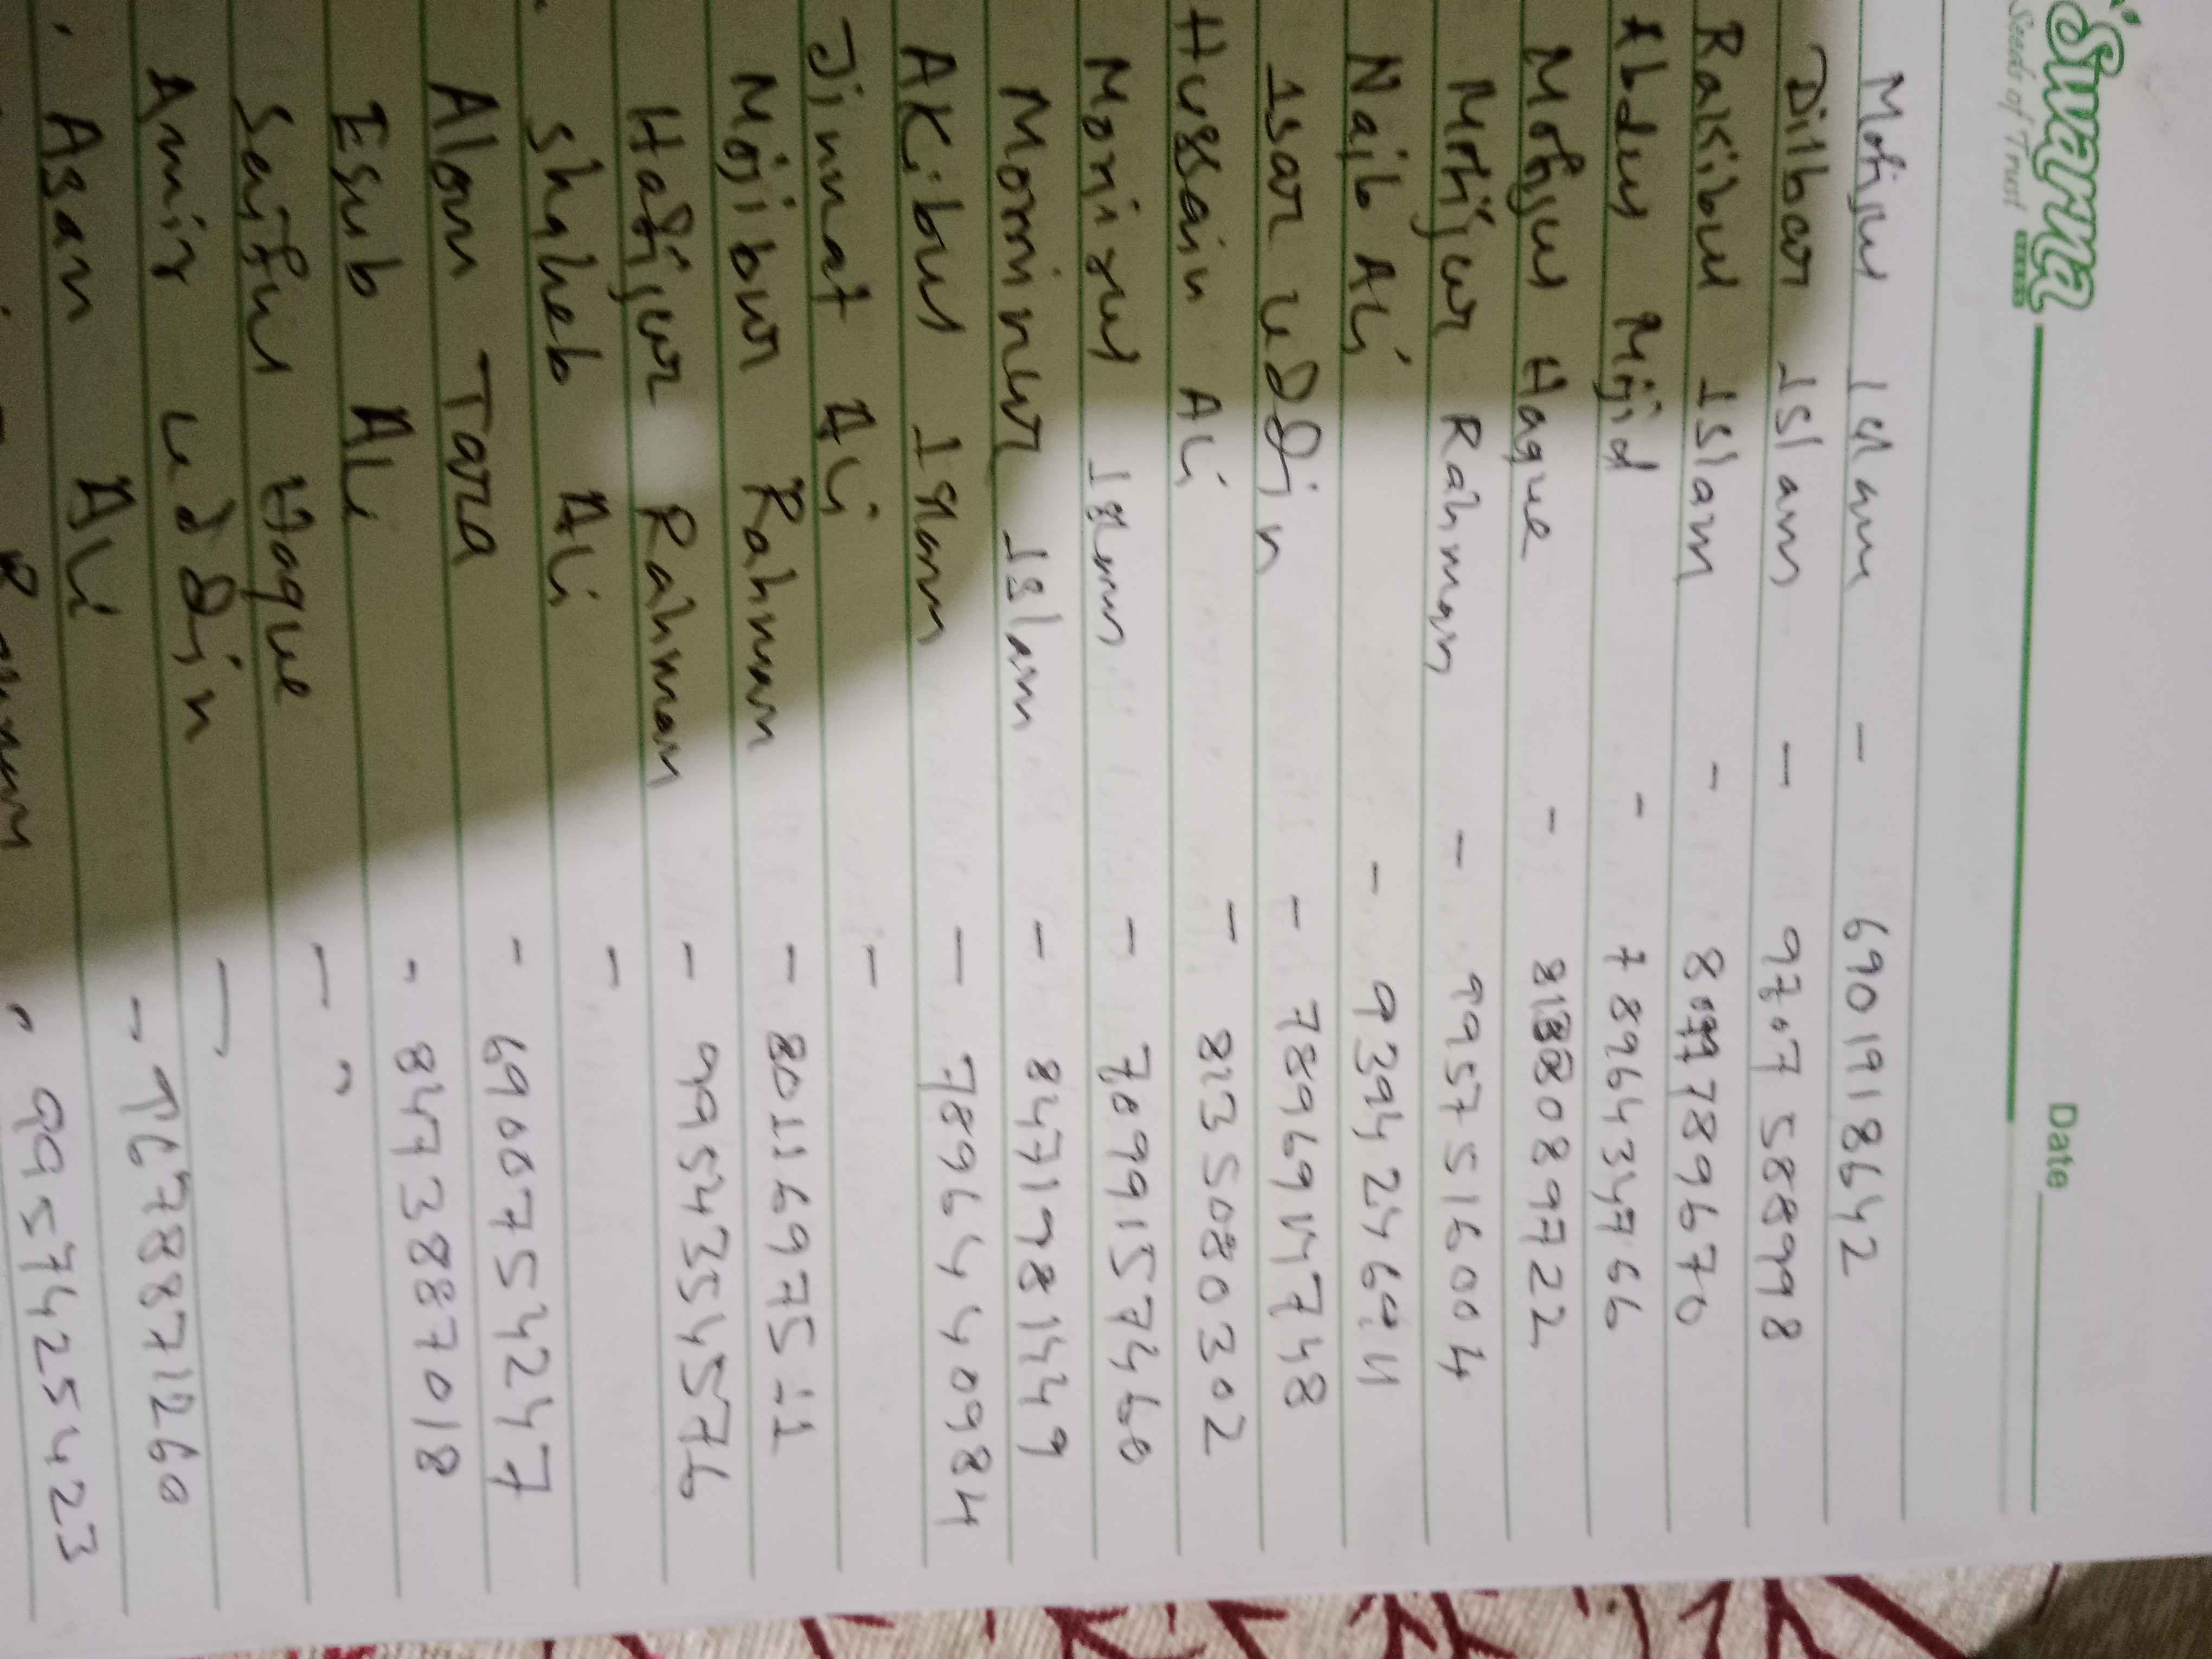 Svarna
Seeds of Trust
Date
Mofijul Islam - 6901918642
Dilbar Islam - 9707588998
Rakibul Islam - 8 7896670
Abdul Mijid - 7896434766
Mofijul Haque - 8 8089722
Motijur Rahman - 9957516004
Najib Ali - 9394246911
Isar uddin - 7896914748
Hussain Ali - 8135080302
Monirul Islam - 7099157460
Mominur Islam - 8471981449
Akibul Islam - 7896440984
Jinnat Ali -
Mojibur Rahman - 8011697511
Hafijur Rahman - 9954354576
Shaheb Ali -
Alom Tara - 6900754247
Esub Ali - 8473887018
Saiful Haque - "
Amir uddin -
Asan Ali - 78871260
9957425423